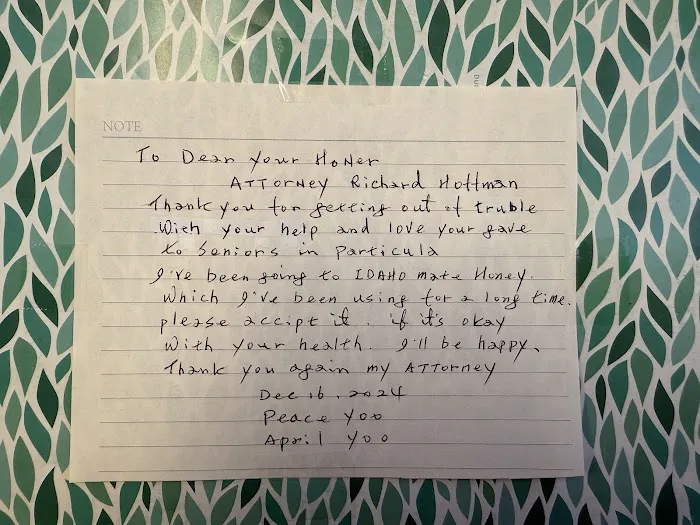 NOTE
To Dear Your HoNer
ATTorney Richard Hoffman
Thank you for getting out of truble
With your help and love your gave
to Seniors in Particula
I've been going to IDAHO mate Honey.
Which I've been using for a long time.
please accipt it. if it's okay
With your health. I'll be happy.
Thank you again my ATTorney
Dec 16, 2024
Peace Yoo
April Yoo